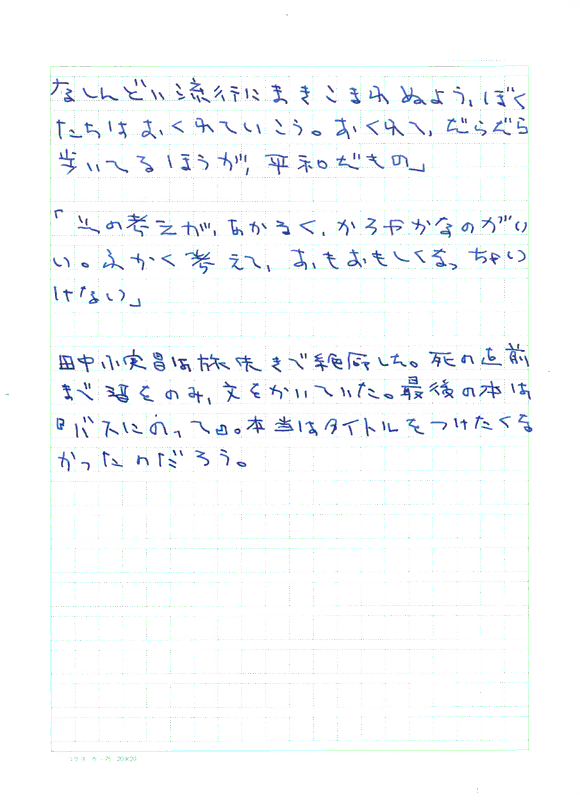 なしんどい流行にまきこまれぬよう、ぼく
たちはおくれていこう。おくれて、だらだら
歩いてるほうが、平和だもの」
「 の考えが、あかるく、かろやかなのがい
い。ふかく考えて、おもおもしくなっちゃい
けない」
田中小実昌は旅先きで絶命した。死の直前
まで酒をのみ、文をかいていた。最後の本は
『バスにのって』。本当はタイトルをつけたくな
かったのだろう。
20×20